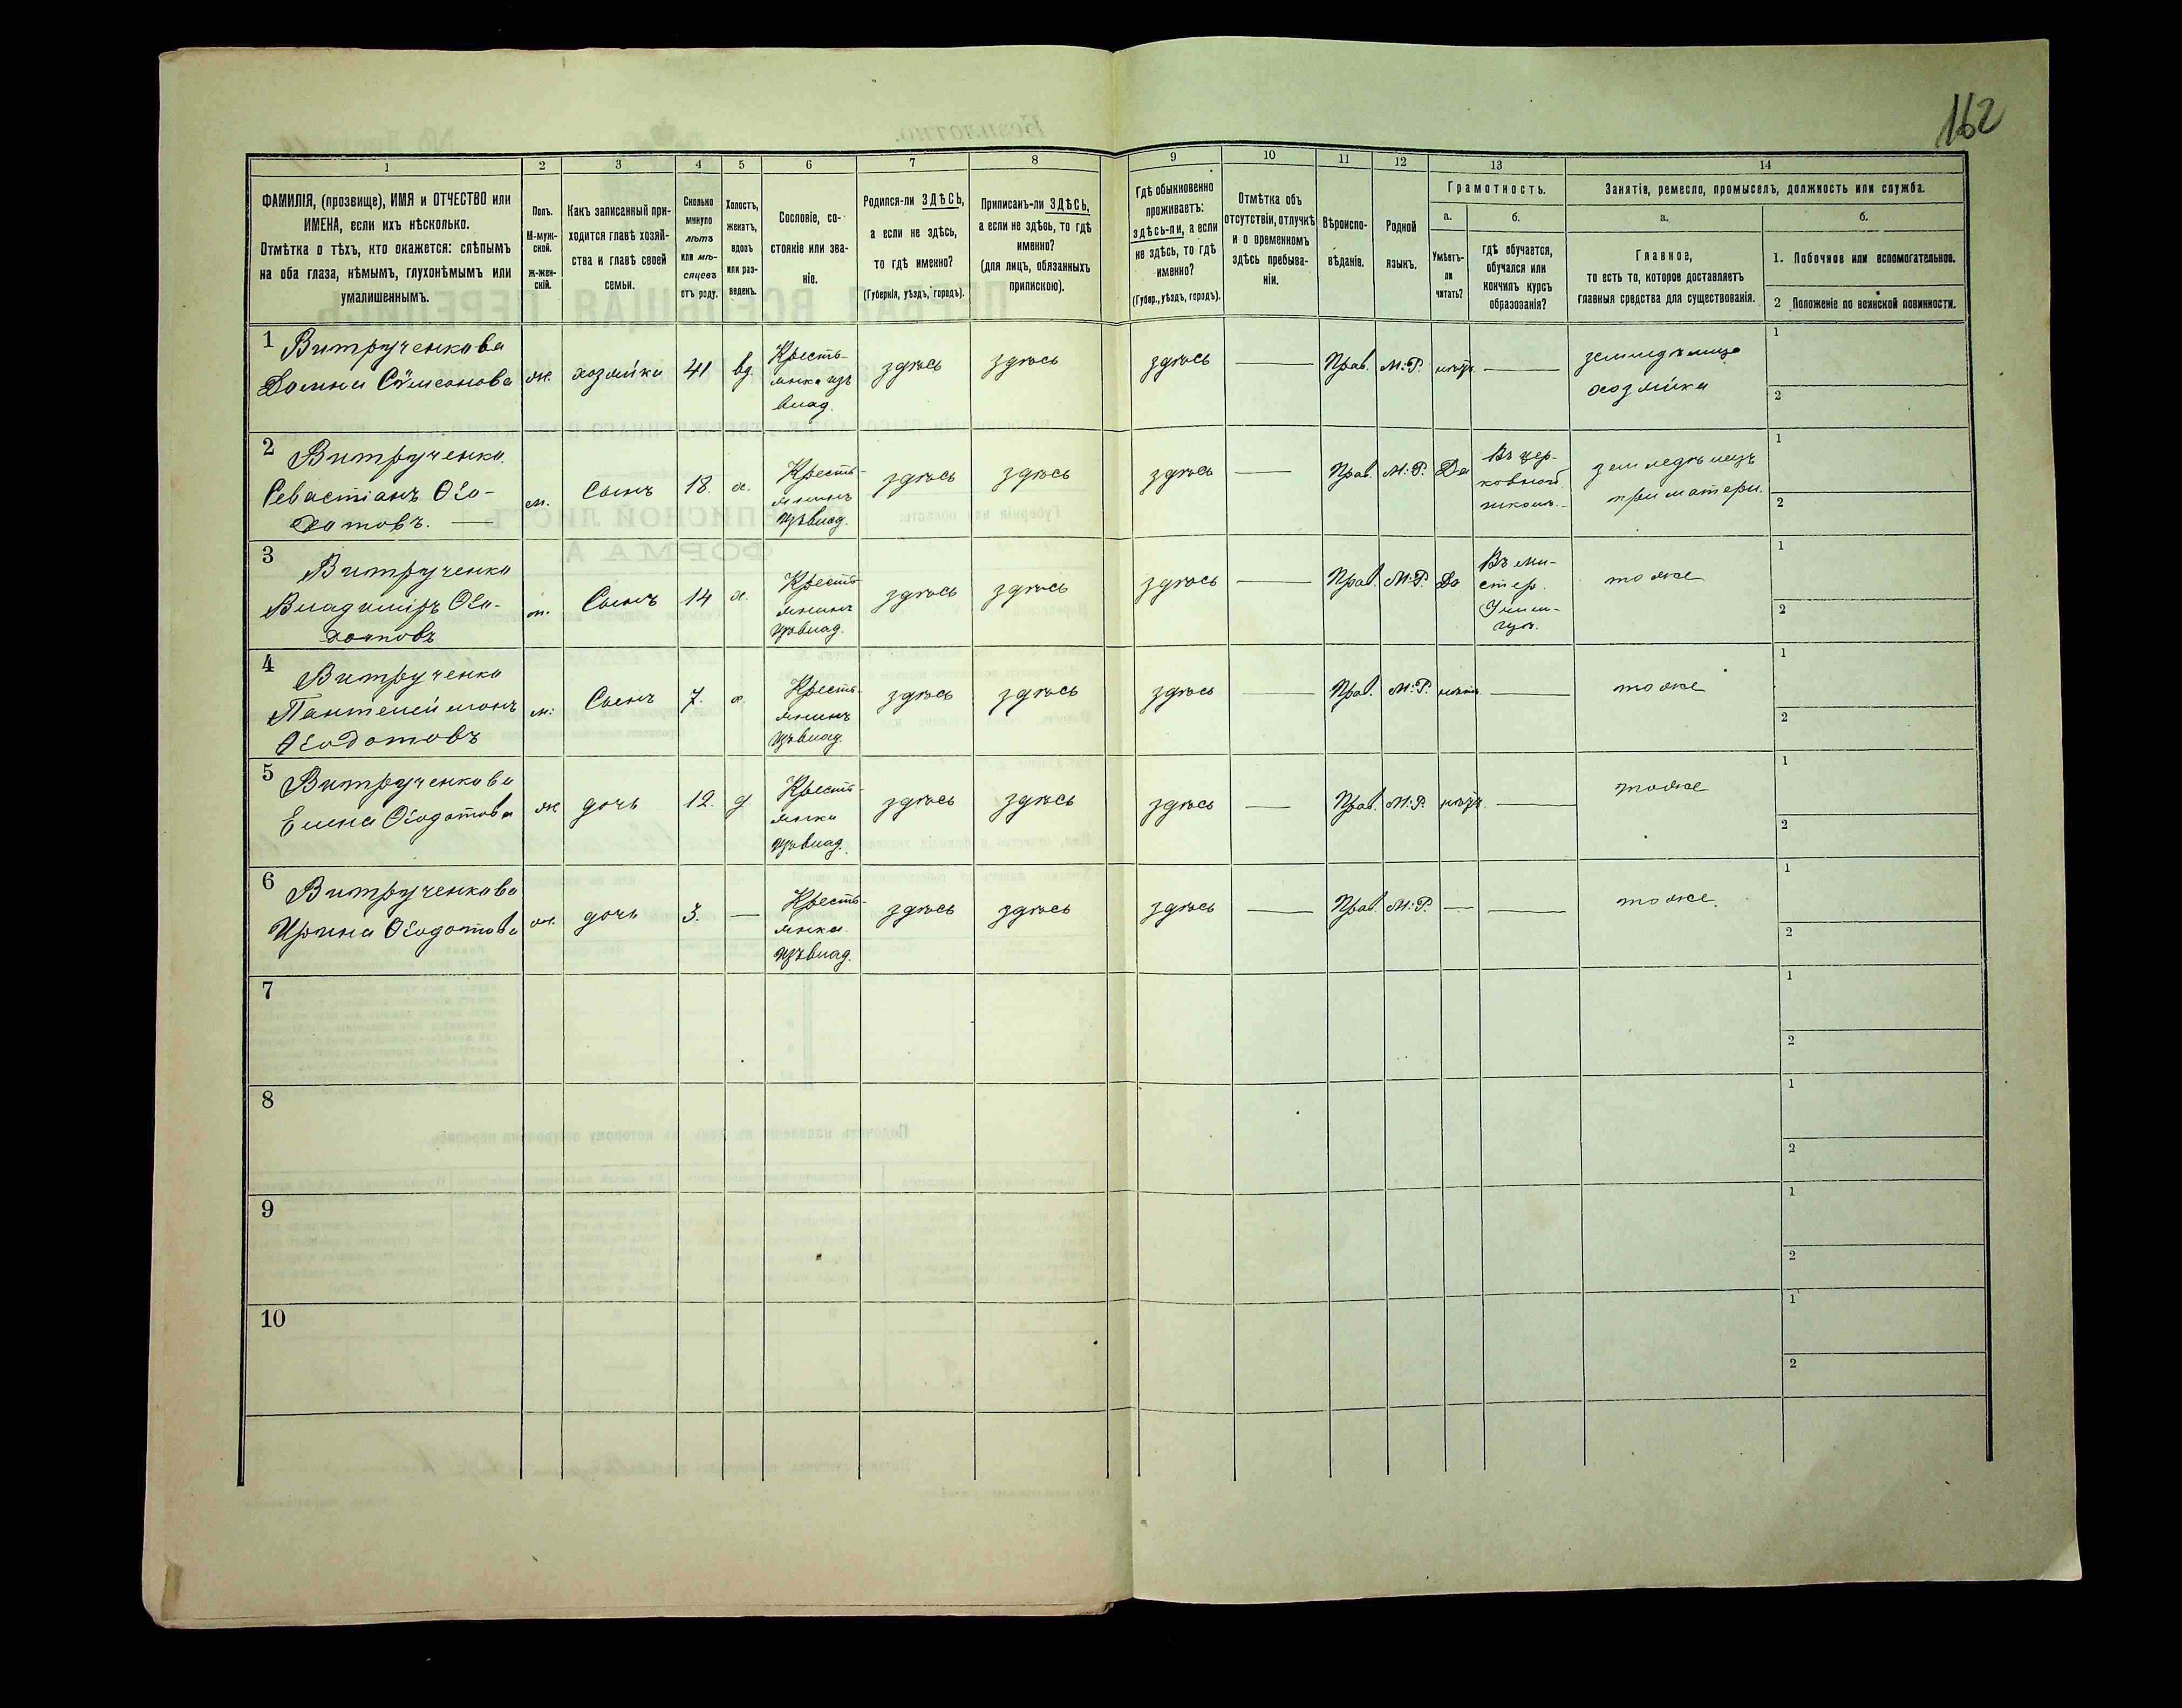 162
1
2
3
4
5
6
7
8
9
10
11
12
13
14
ФАМИЛІЯ, (прозвище), ИМЯ и ОТЧЕСТВО или
ИМЕНА, если ихъ нѣсколько.
Отмѣтка о тѣхъ, кто окажется: слѣпымъ
на оба глаза, нѣмымъ, глухонѣмымъ или
умалишеннымъ.
Полъ.
М-муж-
ской.
Ж-жен-
скій.
Какъ записанный при-
ходится главѣ хозяй-
ства и главѣ своей
семьи.
Сколько
минуло
лѣтъ
или мѣ-
сяцевъ
отъ роду.
Холостъ,
женатъ,
вдовъ
или раз-
веденъ.
Сословіе, со-
стояніе или зва-
ніе.
Родился-ли ЗДѢСЬ,
а если не здѣсь,
то гдѣ именно?
(Губернія, уѣздъ, городъ).
Приписанъ-ли ЗДѢСЬ,
а если не здѣсь, то гдѣ
именно?
(для лицъ, обязанныхъ
припискою).
Гдѣ обыкновенно
проживаетъ:
здѣсь-ли, а если
не здѣсь, то гдѣ
именно?
(Губер., уѣздъ, городъ).
Отмѣтка объ
отсутствіи, отлучкѣ
и о временномъ
здѣсь пребыва-
ніи.
Вѣроиспо-
вѣданіе.
Родной
языкъ.
Грамотность.
а.
б.
Умѣетъ-
ли
читать?
гдѣ обучается,
обучался или
кончилъ курсъ
образованія?
Занятіе, ремесло, промыселъ, должность или служба.
а.
б.
Главное,
то есть то, которое доставляетъ
главныя средства для существованія.
1. Побочное или вспомогательное.
2 Положеніе по воинской повинности.
1 Витрученкова
Домна Сѵмеонова
ж.
хозяйка
41
вд.
Кресть-
янка изъ
влад.
здѣсь
здѣсь
здѣсь
Прав.
М.Р.
нѣтъ
земледѣлица
хозяйка
1
2
2 Витрученко
Севастіанъ Ѳео-
дотовъ.
м.
Сынъ
18
х.
Кресть-
янинъ
изъ влад.
здѣсь
здѣсь
здѣсь
Прав.
М.Р.
Да
Въ цер-
ковной
школѣ.
земледѣлецъ
при матери.
1
2
3 Витрученко
Владиміръ Ѳео-
дотовъ
м.
Сынъ
14
х.
Кресть-
янинъ
изъ влад.
здѣсь
здѣсь
здѣсь
Прав.
М.Р.
Да
Въ ми-
стер.
Учили-
щѣ.
тоже
1
2
4 Витрученко
Пантелеймонъ
Ѳеодотовъ
м.
Сынъ
7.
х.
Кресть-
янинъ
изъ влад.
здѣсь
здѣсь
здѣсь
Прав.
М.Р.
нѣтъ
тоже
1
2
5 Витрученкова
Елена Ѳеодотова
ж
дочь
12.
д
Кресть-
янка
изъ влад.
здѣсь
здѣсь
здѣсь
Прав.
М.Р.
нѣтъ
тоже
1
2
6 Витрученкова
Ирина Ѳеодотова
ж.
дочь
3.
Кресть-
янка
изъ влад.
здѣсь
здѣсь
здѣсь
Прав.
М.Р.
тоже.
1
2
7
1
2
8
1
2
9
1
2
10
1
2